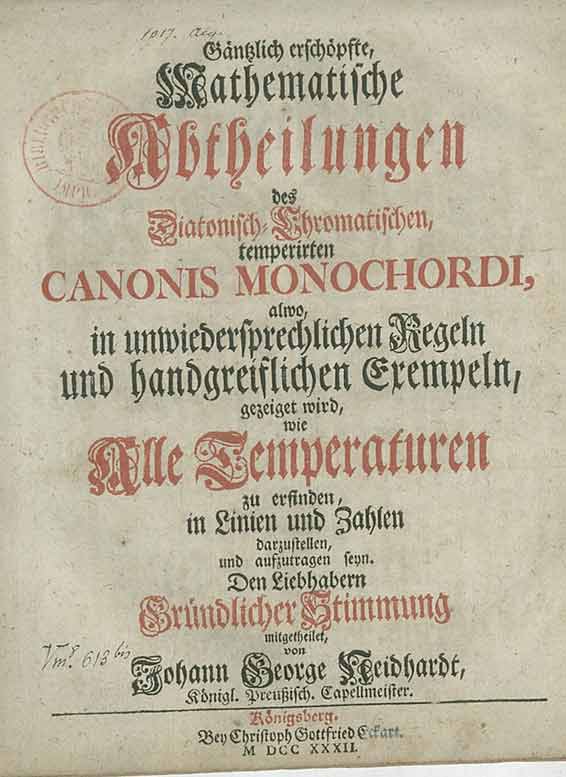 1017. Acq.
Gäntzlich erschöpfte,
Mathematische
Abtheilungen
des
Diatonisch-Chromatischen,
temperirten
CANONIS MONOCHORDI,
alwo,
in unwiedersprechlichen Regeln
und handgreiflichen Exempeln,
gezeiget wird,
wie
Alle Temperaturen
zu erfinden,
in Linien und Zahlen
darzustellen,
und aufzutragen seyn.
Den Liebhabern
Gründlicher Stimmung
mitgetheilet,
von
Vm8. 613 bis
Johann George Neidhardt,
Königl. Preußisch. Capellmeister.
Königsberg.
Bey Christoph Gottfried Eckart.
M DCC XXXII.